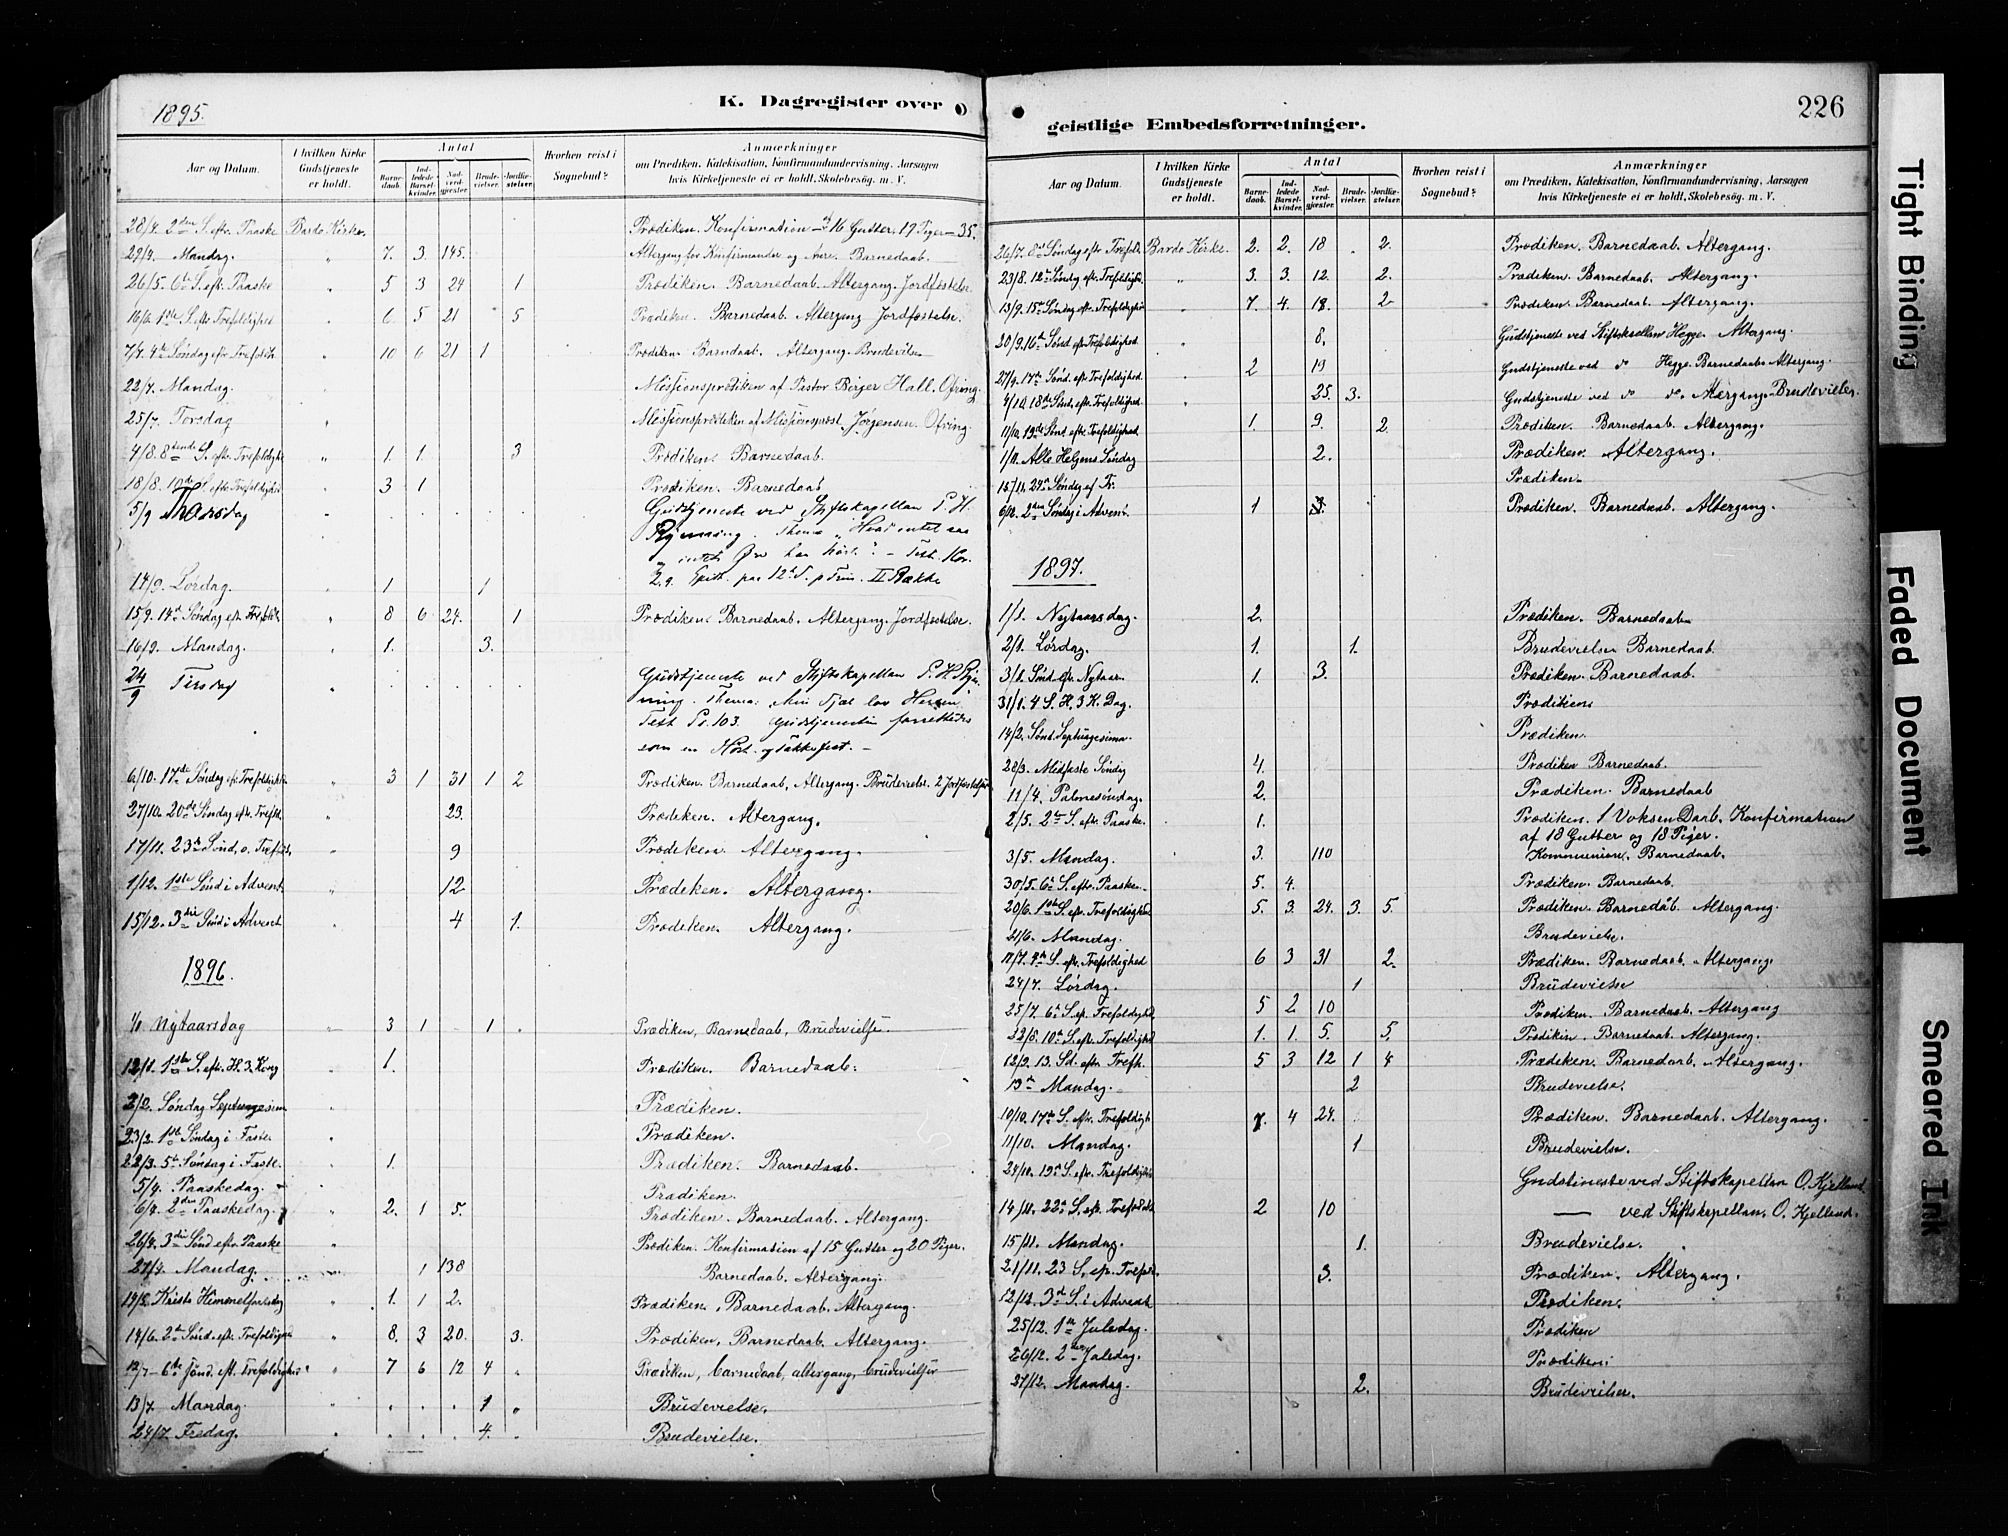 1895.
K. Dagregister over
Aar og Datum.
I hvilken Kirke Gudstjeneste er holdt.
Antal
Barnedaab.
Indledede Barselkvinder.
Nadverdgjester.
Brudevielser.
Jordfæstelser.
Hvorhen reist i Sognebud?
Anmærkninger
om Prædiken, Katekisation, Konfirmandundervisning, Aarsagen
hvis Kirketjeneste ei er holdt, Skolebesøg. m. V.
28/4. 2den S. eftr. Paaske Bardo Kirke. Prædiken. Konfirmation 16 Gutter. 19 Piger = 35.
29/4. Mandag. " 7. 3. 145. Altergang for Konfirmander og Andre. Barnedaab.
26/5. 6te S. eftr. Paaske " 5 3 24 1 Prædiken. Barnedaab. Altergang. Jordfæstelse.
16/6. 1ste S. eftr. Trefoldighed " 6 5 21 5 Prædiken. Barnedaab. Altergang. Jordfæstelse.
7/7. 4de Søndag eftr. Trefoldh. " 10 6 21 1 Prædiken. Barndaab. Altergang. Brudevielse
22/7. Mandag. " Missionsprædiken af Pastor Birger Hall. Ofring.
25/7. Torsdag " Missionsprædiken af Missionsprest Jørgensen. Ofring.
4/8. 8tende S. eftr. Trefoldighed " 1. 1. 3 Prædiken. Barnedaab.
18/8. 10de S. eftr. Trefoldighed " 3 1 Prædiken. Barnedaab
5/9 Thorsdag " Gudstjeneste ved Stiftskapellan P. H.
Rynning. Thema "Hvad intet saa
og intet Øre har hørt". - Text. Kor.
2.9. Epist. paa 12te S. p Trin. II Række
14/9. Lørdag. " 1 1
15/9. 14de Søndag eft. Trefoldh. " 8 6 24. 1 Prædiken. Barnedaab. Altergang. Jordfæstelse.
16/9. Mandag. " 1. 3.
24/9 Tirsdag " Gudstjeneste ved Stiftskapellan P. H. Ryn-
ning. Thema: Min Sjæl lov Herren
Text Ps. 103. Gudstjenesten forrettedes
som en Høst- og Takkefest. -
6/10. 17de Søndag eft. Trefoldighed " 3 1 31 1 2 Prædiken. Barnedaab, Altergang. Brudevielse. 2 Jordfæstelser
27/10. 20de Søndag eftr. Trefold. " 23. Prædiken. Altergang.
17/11. 23de Sønd. e. Trefoldh. " 9 Prædiken. Altergang.
1/12. 1ste Sønd i Advent " 12 Prædiken. Altergang.
15/12. 3die Sønd i Advent " 4 1. Prædiken. Altergang.
1896.
1/1 Nytaarsdag " 3 1 1 Prædiken, Barnedaab, Brudevielse.
12/1. 1ste S. eftr. H. 3. Kong " 1. Prædiken. Barnedaab.
2/2. Søndag Septuagesim. " Prædiken.
23/2. 1ste Søndag i Faste. " Prædiken.
22/3. 5te Søndag i Faste. " 1. Prædiken. Barnedaab.
5/4. Paaskedag. " Prædiken.
6/4. 2den Paaskedag. " 2. 1 5. Prædiken. Barnedaab. Altergang.
26/4. 3die Sønd eftr. Paaske " Prædiken. Konfirmation af 15 Gutter og 20 Piger.
27/4. Mandag. " 1 138 Barnedaab. Altergang.
14/5. Kristi Himmelfartsdag " 1. 1 2. Prædiken. Barnedaab. Altergang.
14/6. 2den Sønd. eftr. Trefoldighed " 8. 3 20. 3. Prædiken, Barnedaab, Altergang.
12/7 - 6te Sønd. eft. Trefoldighed " 7 6 12 4 Prædiken, barnedaab, altergang, brudevielser
13/7. Mandag. " 1 Brudevielse.
24/7. Fredag. " 4. Brudevielse.
226
geistlige Embedsforretninger.
Aar og Datum.
I hvilken Kirke Gudstjeneste er holdt.
Antal
Barnedaab.
Indledede Barselkvinder.
Nadverdgjester.
Brudevielser.
Jordfæstelser.
Hvorhen reist i Sognebud?
Anmærkninger
om Prædiken, Katekisation, Konfirmandundervisning, Aarsagen
hvis Kirketjeneste ei er holdt, Skolebesøg. m. V.
26/7. 8de Søndag eftr. Trefoldh. Bardo Kirke. 2. 2. 18 2. Prædiken. Barnedaab. Altergang.
23/8. 12te Søndag eftr. Trefoldighed " 3. 3. 12. 2. Prædiken. Barnedaab. Altergang.
13/9. 15de Søndag eftr. Trefoldighed 7. 4. 18. 2. Prædiken. Barnedaab. Altergang.
20/9. 16de Sønd eftr. Trefoldighed " 8. Gudstjeneste ved Stiftskapellan Hegge. Altergang.
27/9. 17de Sønd. eftr. Trefoldighed. " 2 19 Gudstjeneste ved do Hegge. Barnedaab. Altergang.
4/10. 18de Sønd. eftr. Trefoldighed. " 25. 3. Gudstjeneste ved do do. Altergang. Brudevielser.
11/10. 19de Sønd eftr. Trefoldighed 1. 9. 2. Prædiken. Barnedaab. Altergang.
1/11. Alle Helgens Søndag 2. Prædiken. Altergang.
15/11. 24de Søndag ef Tr. Prædiken.
6/12. 2den Søndag i Advent 1 3. Prædiken. Barnedaab. Altergang.
1897.
1/1. Nytaarsdag. 2. Prædiken. Barnedaab.
2/1. Lørdag. 1. 1. Brudevielse. Barnedaab.
3/1. Sønd. eftr. Nytaar. 1. 3. Prædiken. Barnedaab.
31/1. 4 S. H. 3 K. Dag. Prædiken.
14/2. Sønd. Septuagesima. Prædiken.
28/3. Midfaste Søndag 4. Prædiken Barnedaab.
11/4. Palmesøndag. 2. Prædiken. Barnedaab
2/5. 2den S. eftr. Paaske. 1. Prædiken. 1 Voksen Daab. Konfirmation
af 18 Gutter og 18 Piger.
3/5. Mandag. 3. 110 Kommunion. Barnedaab.
30/5. 6te S. eftr. Paaske. 5. 4. Prædiken. Barnedaab.
20/6. 1ste S. eftr. Trefoldighed 5. 3. 24. 3. 5. Prædiken. Barnedåb. Altergang.
21/6. Mandag. Brudevielse.
11/7. 4de S. eftr. Trefoldighed 6 3 31 2. Prædiken. Barnedaab. Altergang.
24/7. Lørdag. 1 Brudevielse
25/7. 6te S. ef. Trefoldighed 5 2 10 Prædiken. Barnedaab. Altergang
22/8. 10de S. eftr. Trefoldighed 1. 1. 5. 5. Prædiken. Barnedaab. Altergang.
12/9. 13. Sd. eftr. Trefh. 5 3 12 1 4 Prædiken. Barnedaab. Altergang.
13de Mandag. 2 Brudevielse.
10/10. 17de S. eftr. Trefoldigh. 7. 4 24. Prædiken. Barnedaab. Altergang.
11/10. Mandag. 1 Brudevielse.
24/10. 19de S. eftr. Trefoldighed Gudstjeneste ved Stiftskapellan O. Kjelland
14/11. 22de S. eftr. Trefoldh. 2 10 — ved Stiftskapellan, O. Kjelland.
15/11. Mandag. 1. Brudevielse.
21/11. 23 S. eftr. Trefoldh. 3. Prædiken. Altergang.
12/12. 3die S. i Advent Prædiken.
25/12. 1ste Juledag. Prædiken
26/12. 2den Juledag. Prædiken
27/12. Mandag. 2. Brudevielser.
Tight Binding
Faded Document
Smeared Ink